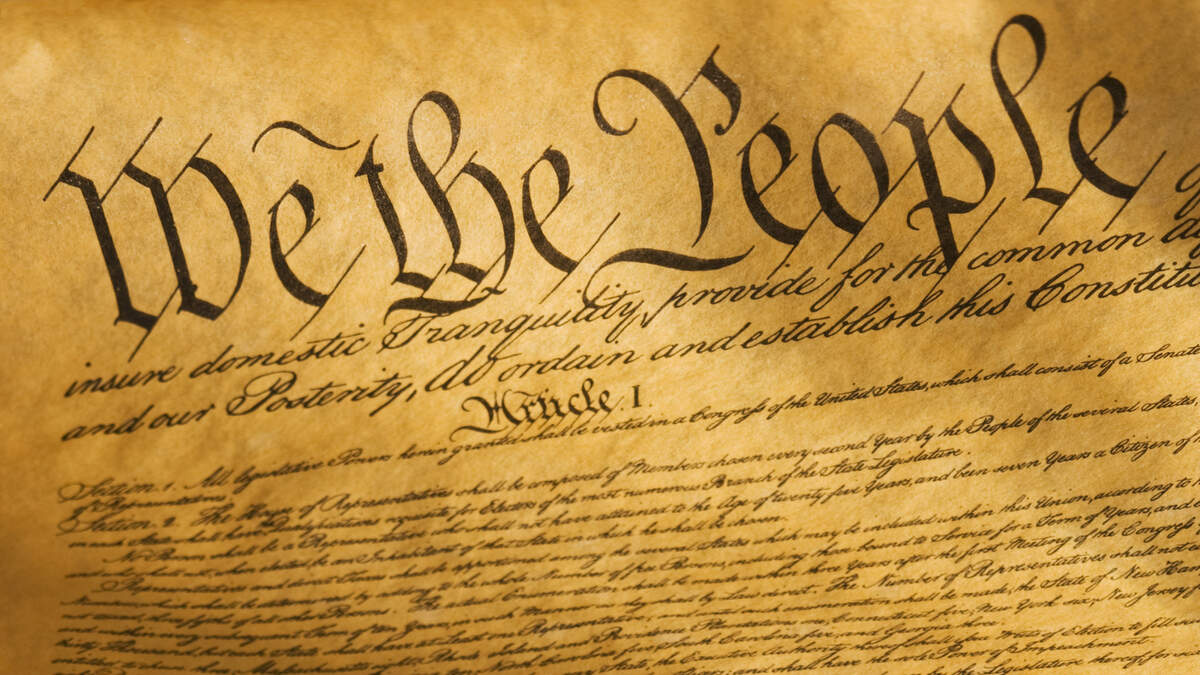 We the People
insure domestic Tranquility, provide for the common
and our Posterity, do ordain and establish this
Article. I.
Section. 1. All legislative Powers herein granted shall be vested in a Congress of the United States, which shall consist of a Senate
of Representatives
Section. 2. The House of Representatives shall be composed of Members chosen every second Year by the People of the several States,
in each State shall have the Qualifications requisite for Electors of the most numerous Branch of the State Legislature.
No Person shall be a Representative who shall not have attained to the Age of twenty five Years, and been seven Years a Citizen of
and who shall not, when elected, be an Inhabitant of that State in which he shall be chosen.
Representatives and direct Taxes shall be apportioned among the several States which may be included within this Union, according to
by adding to the whole Number of free Persons, including those bound to Service for a Term of Years, and
of all other Persons. The actual Enumeration shall be made within three Years after the first Meeting of the Congress
Term of ten Years, in such Manner as they shall by Law direct. The Number of Representatives shall not
and until such enumeration shall be made, the State of New
Rhode Island and Providence Plantations one, Connecticut five, New York six, New Jersey
North Carolina five, South Carolina five, and Georgia three.
State, the Executive Authority thereof shall issue Writs of Election to fill
and shall have the sole Power of Impeachment.
by the Legislature thereof, for